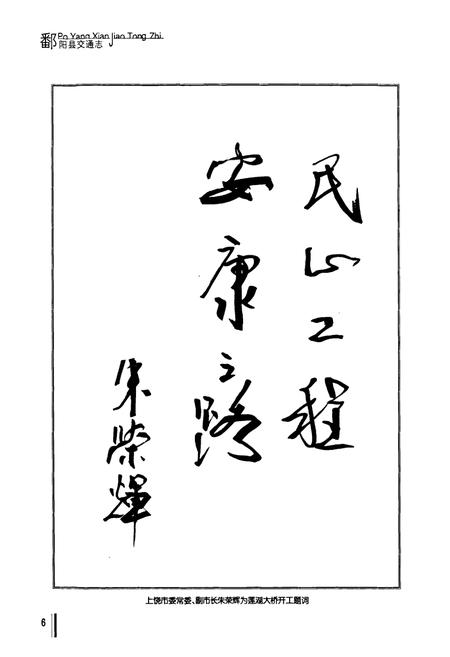 Po Yang Xian Jiao Tong Zhi
鄱阳县交通志
民心工程
安康之路
朱榮輝
上饶市委常委、副市长朱荣辉为莲湖大桥开工题词
6